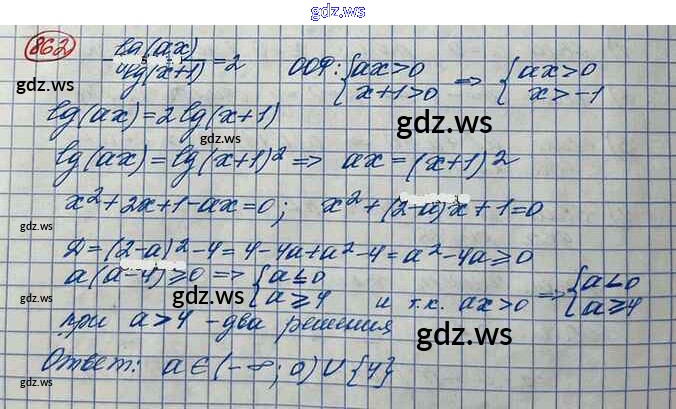 gdz.ws
862 lg(ax)/lg(x+1)=2 ООФ: {ax>0 x+1>0 => {ax>0 x>-1
gdz.ws
lg(ax)=2lg(x+1)
gdz.ws
lg(ax)=lg(x+1)² => ax=(x+1)²
gdz.ws
x²+2x+1-ax=0; x²+(2-a)x+1=0
gdz.ws
Д=(2-a)²-4=4-4a+a²-4=a²-4a≥0
a(a-4)≥0 => {a≤0 a≥4 и т.к. ax>0 => {a<0 a≥4
gdz.ws
gdz.ws
при a>4 - два решения
gdz.ws
Ответ: a∈(-∞; 0)∪{4}
gdz.ws
gdz.ws